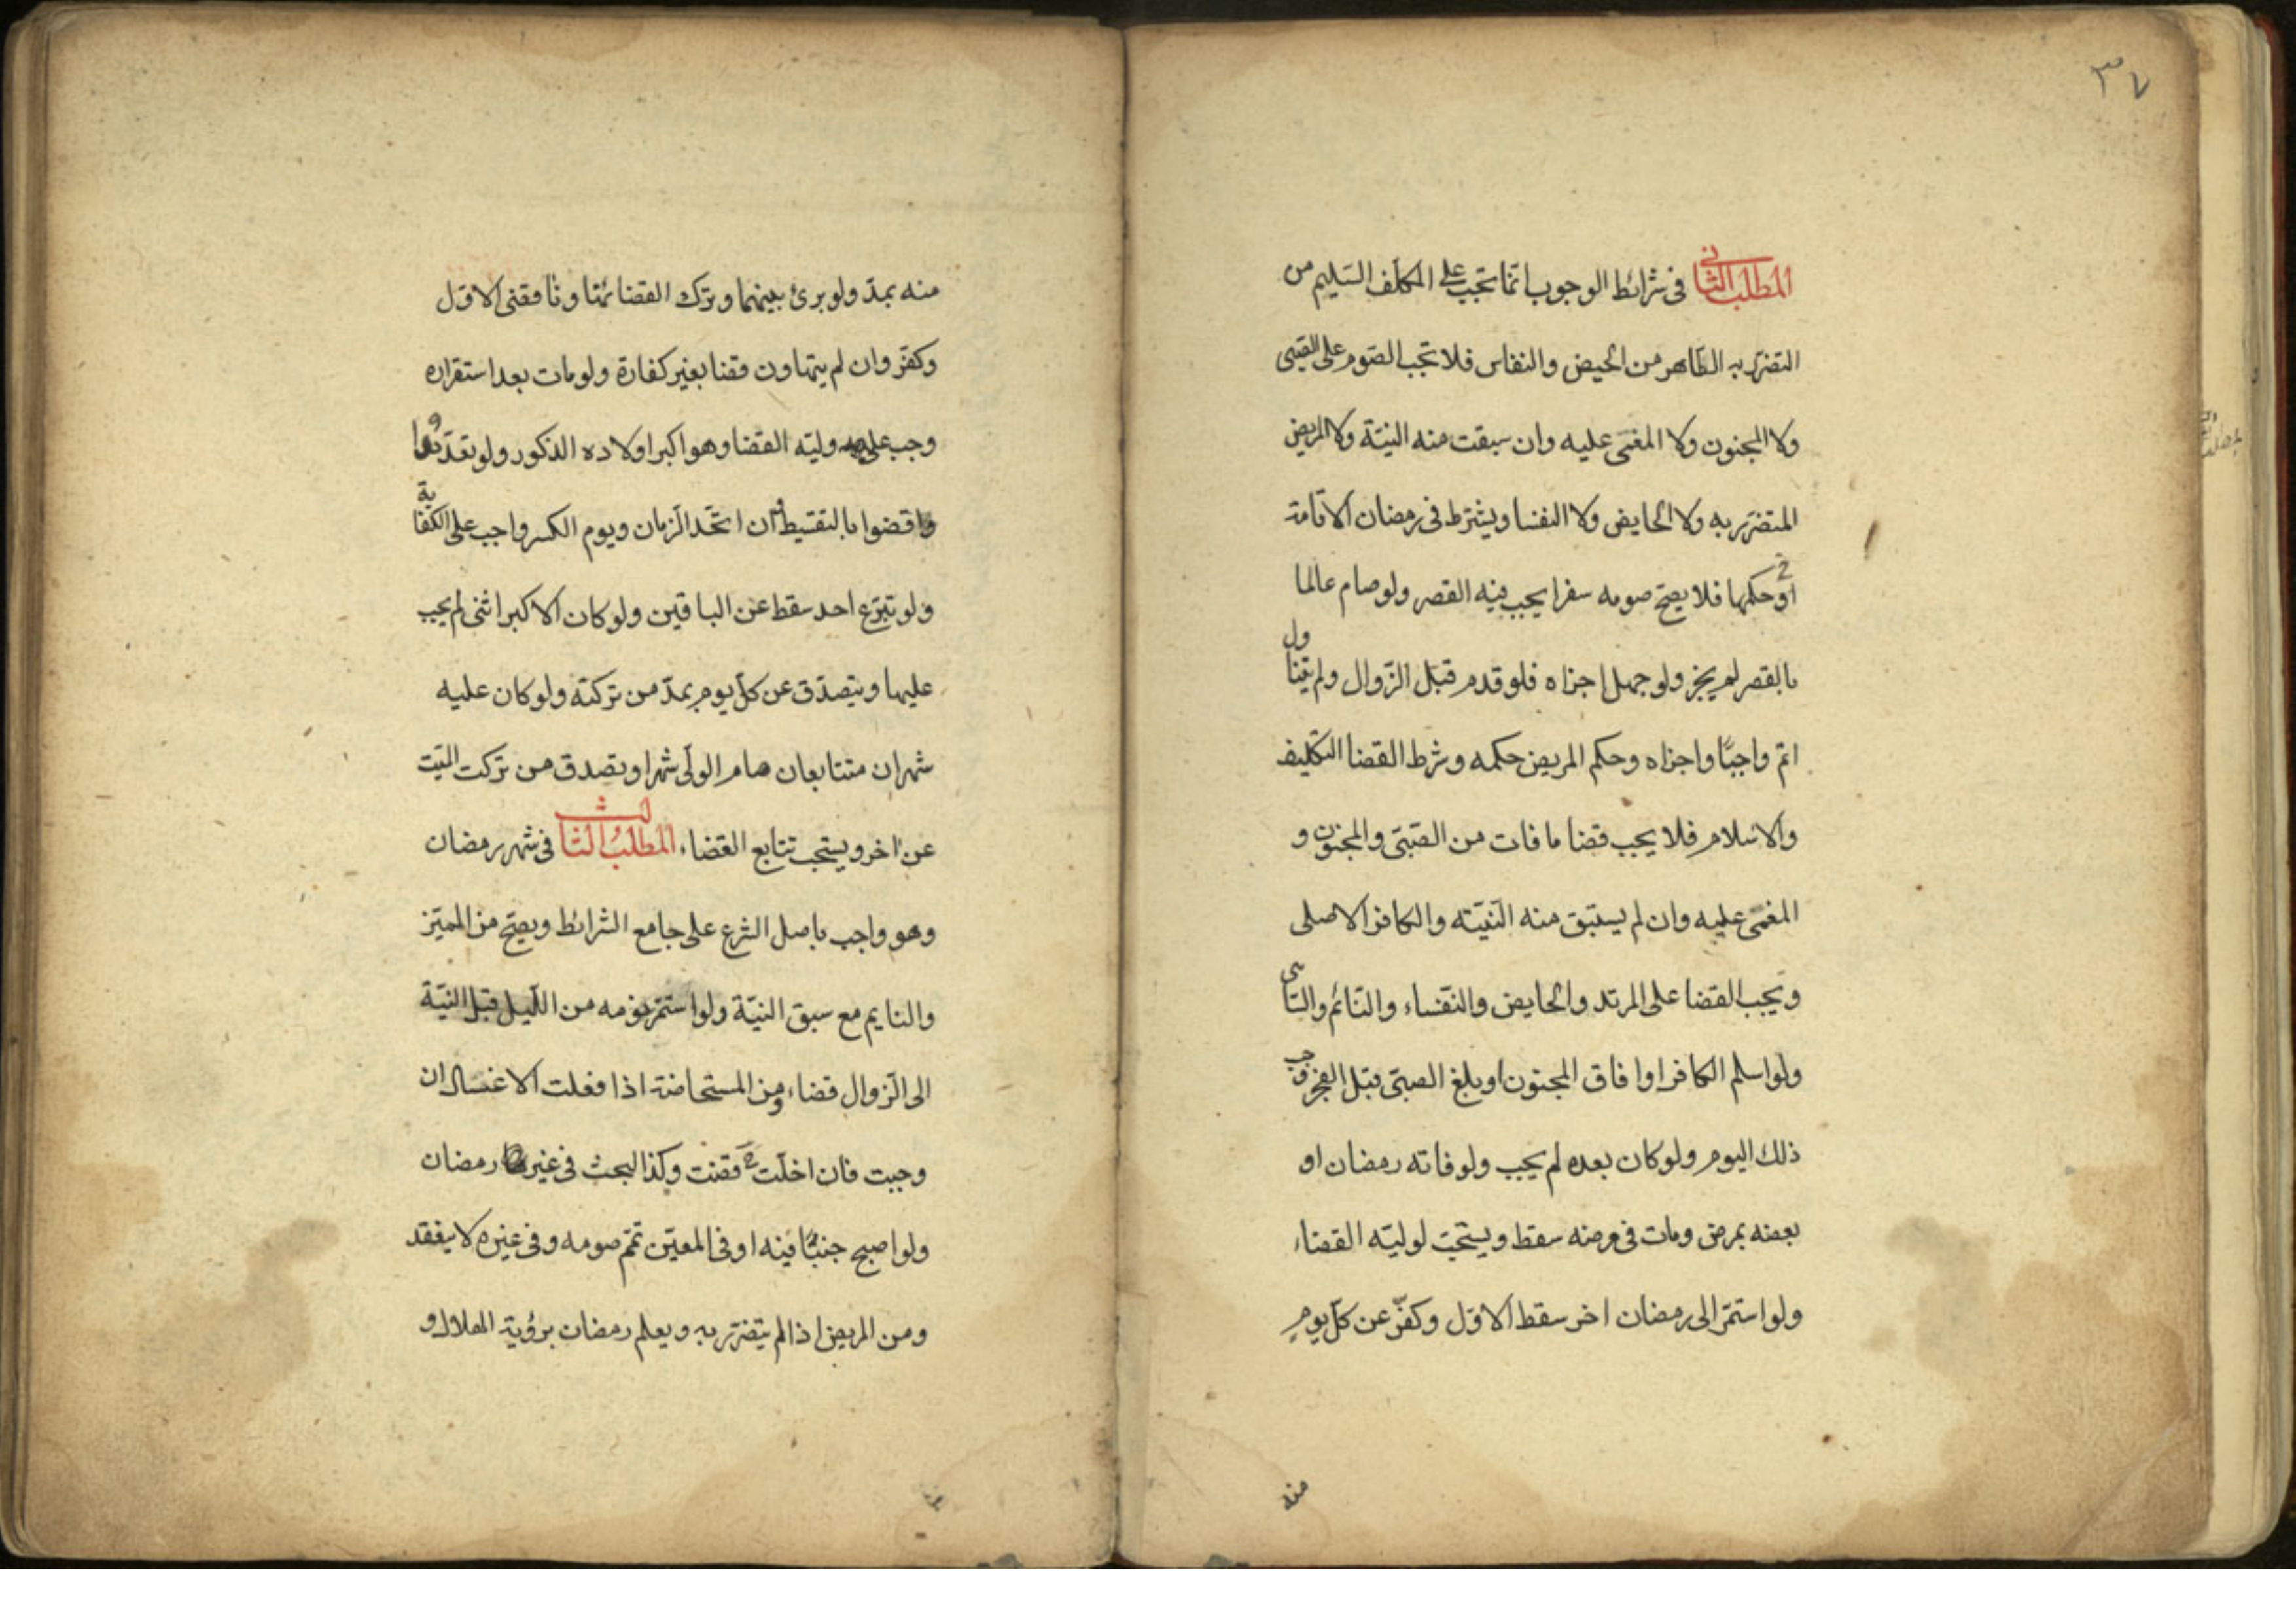 ٣٧
المطلب الثاني في شرائط الوجوب انّما تجب على المكلّف السّليم من
التضرّر به الطّاهر من الحيض والنفاس فلا تجب الصّوم على الصّبى
ولا المجنون ولا المغمى عليه وان سبقت منه النيّة ولا المريض
المتضرّر به ولا الحايض ولا النفسا ويشترط فى رمضان الاقامة
او حكمها فلا يصحّ صومه سفرا يجب فيه القصر ولو صام عالما
بالقصر لم يجز ولو جهل اجزاه فلو قدم قبل الزّوال ولم يتناول
اتم واجبًا واجزاه وحكم المريض حكمه وشرط القضا التكليف
والاسلام فلا يجب قضا ما فات من الصّبىّ والمجنون و
المغمى عليه وان لم يستبق منه النّيّته والكافر الاصلى
ويجب القضا على المرتد والحايض والنّفساء والنّائم والنّاسى
ولو اسلم الكافر او افاق المجنون او بلغ الصبىّ قبل الفجر وجب
ذلك اليوم ولو كان بعده لم يجب ولو فاته رمضان او
بعضه بمرض ومات فى مرضه سقط ويستحبّ لوليّه القضاء
ولو استمرّ الى رمضان اخر سقط الاوّل وكفّر عن كلّ يوم
منه
منه بمدّ ولو برئ بينهما وترك القضا تهاونا قضى الاوّل
وكفّر وان لم يتهاون قضا بغير كفارة ولو مات بعد استقراره
وجب على وليّه القضا وهو اكبر اولاده الذكور ولو تعدّدوا
قضوا بالتقسيط وان اتّحد الزّمان ويوم الكسر واجب على الكفاية
ولو تبرّع احد سقط عن الباقين ولو كان الاكبر انثى لم يجب
عليها ويتصدّق عن كلّ يوم بمدّ من تركته ولو كان عليه
شهران متتابعان صام الولىّ شهرا وتصدق من تركت الميّت
عن اخر ويستحب تتابع القضاء المطلب الثالث فى شهر رمضان
وهو واجب باصل الشرع على جامع الشرائط ويصحّ من المميّز
والنايم مع سبق النيّة ولو استمرّ نومه من اللّيل قبل النيّة
الى الزّوال قضاء ومن المستحاضة اذا فعلت الاغسال ان
وجبت فان اخلّت قضت وكذا البحث فى غير رمضان
ولو اصبح جنبًا فيه او فى المعيّن تمّم صومه وفى غيره لا ينعقد
ومن المريض اذا لم يتضرّر به ويعلم رمضان برؤية الهلال و